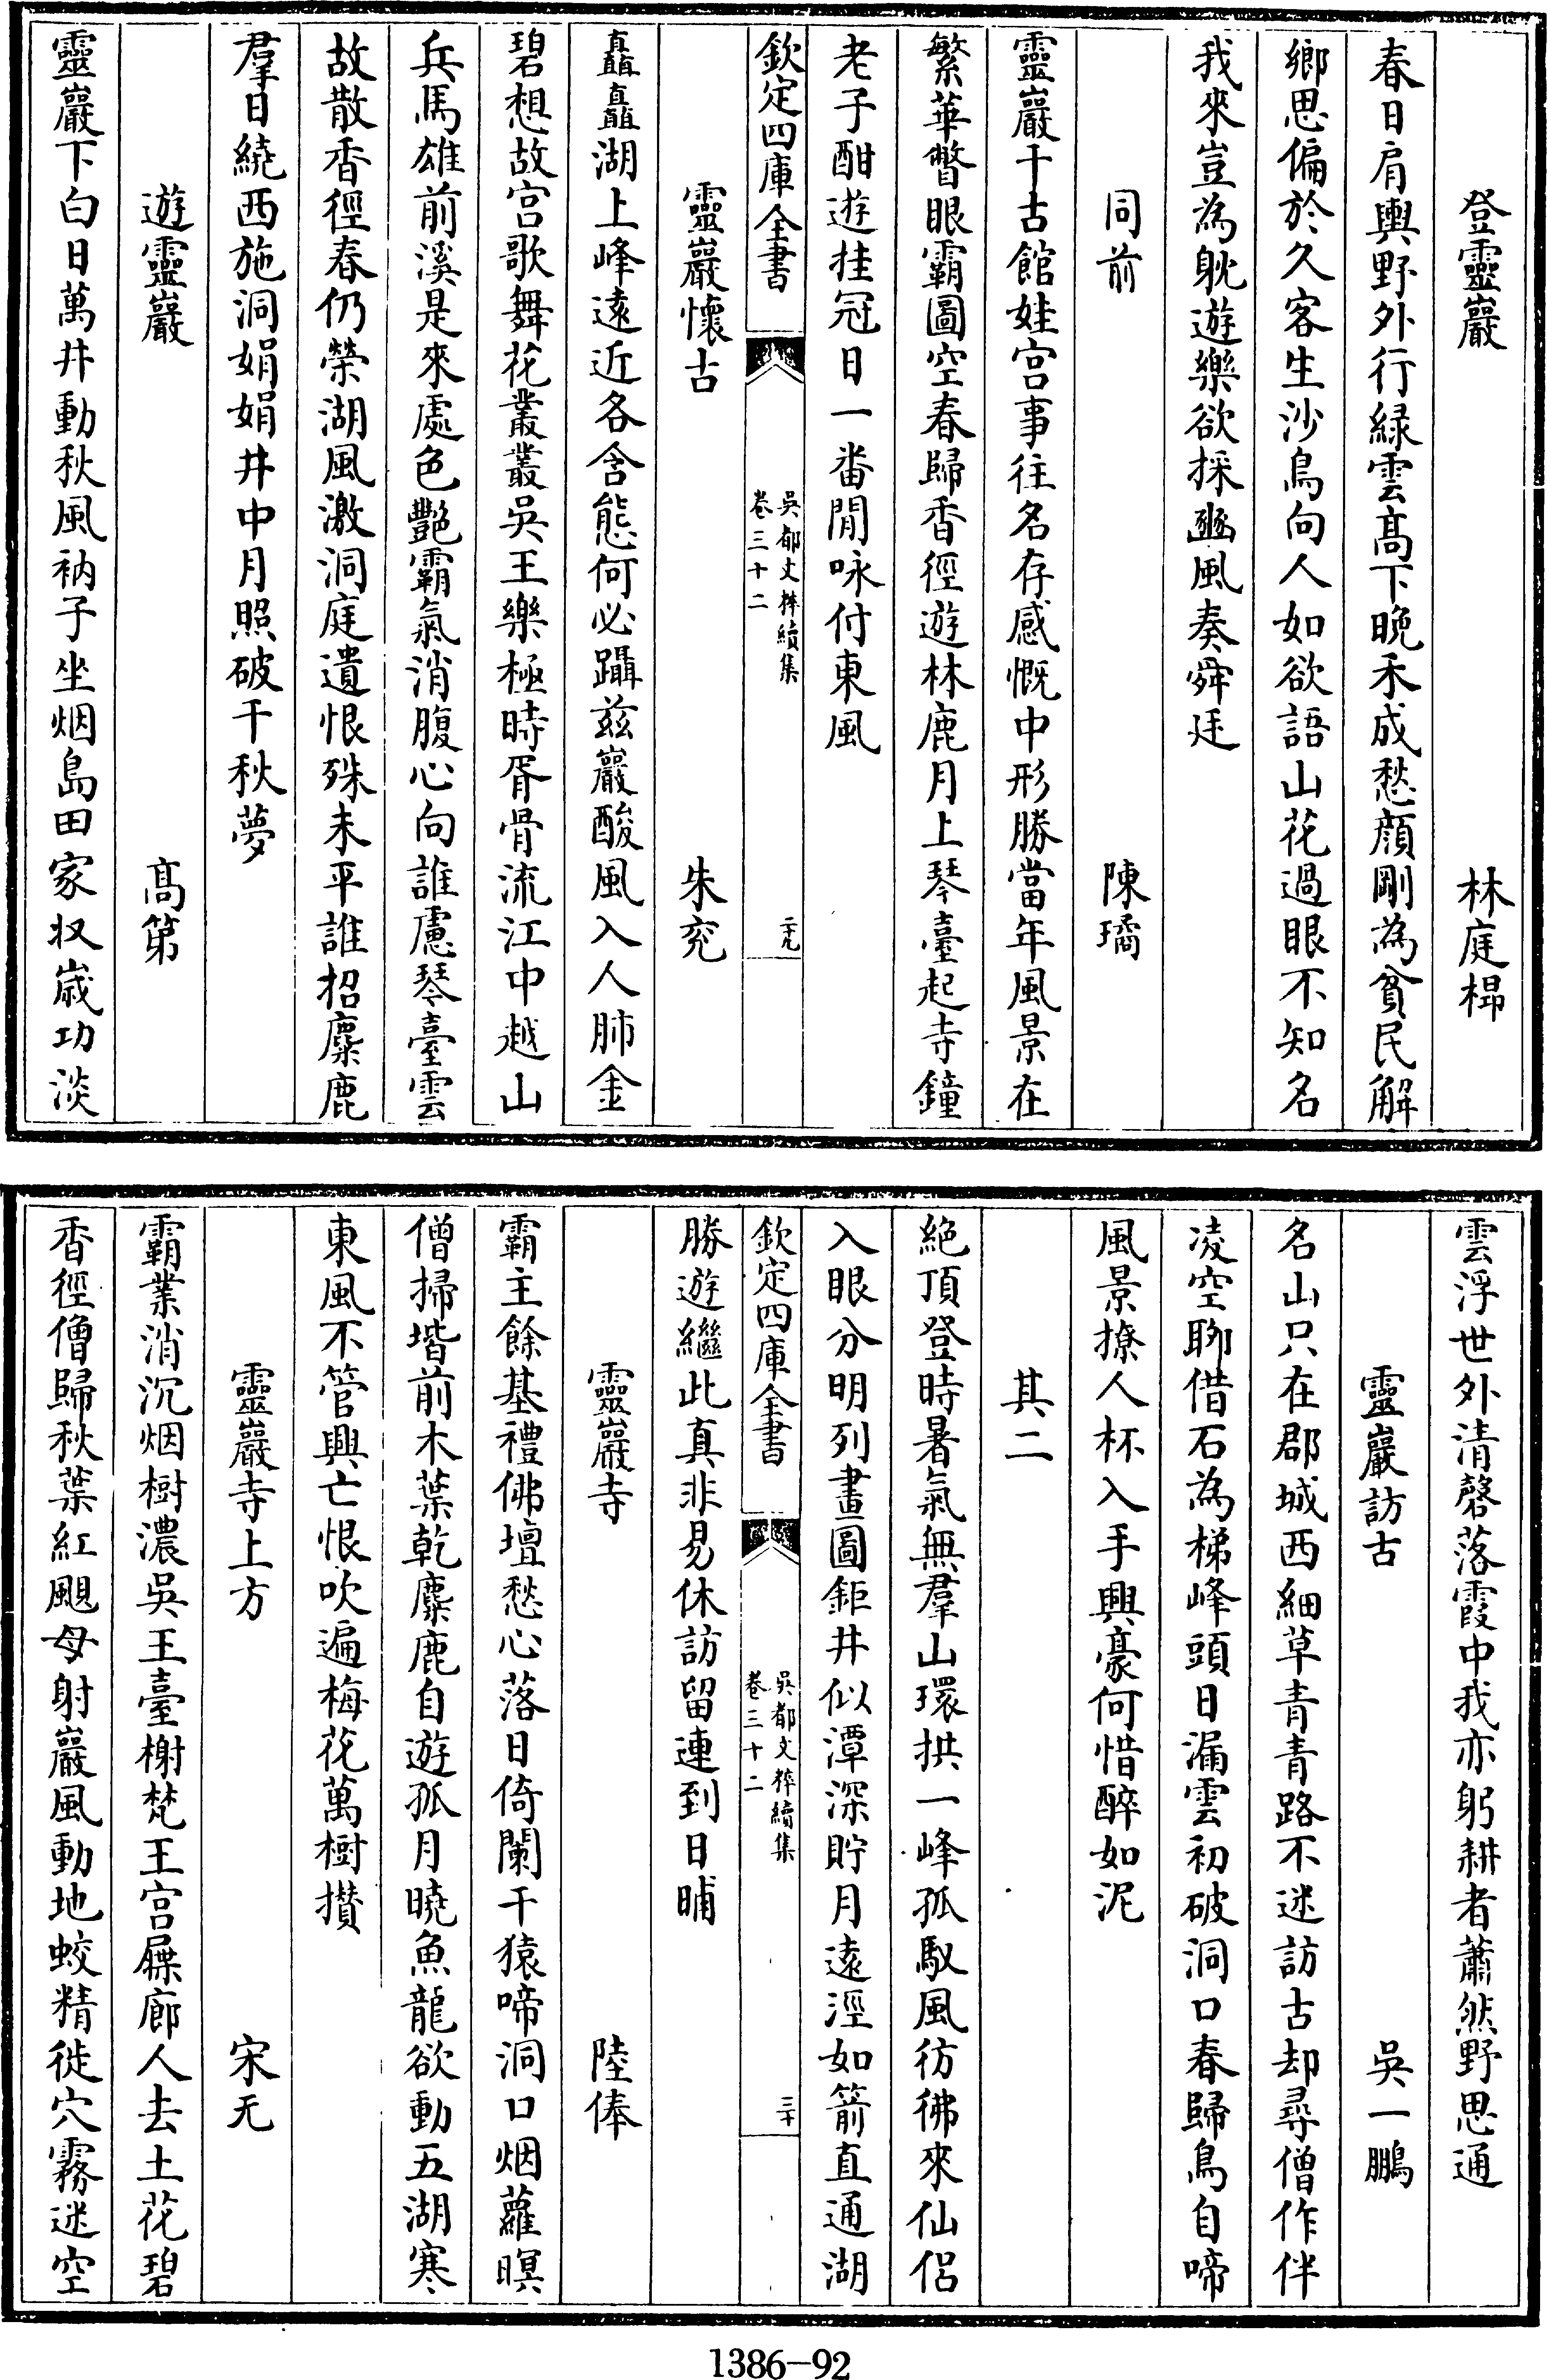 登靈巖 林庭㭿
春日肩輿野外行緑雲髙下晩禾成愁顔剛為貧民解
鄉思偏於久客生沙鳥向人如欲語山花過眼不知名
我來豈為躭遊樂欲採豳風奏舜廷
同前 陳璚
靈巖千古館娃宫事往名存感慨中形勝當年風景在
繁華瞥眼霸圖空春歸香徑遊林鹿月上琴臺起寺鐘
老子酣遊挂冠日一畨閒咏付東風
欽定四庫全書 吳都文粹續集 卷三十二 二十九
靈巖懷古 朱兖
矗矗湖上峰遠近各含態何必躡兹巖酸風入人肺金
碧想故宫歌舞花叢叢吳王樂極時胥骨流江中越山
兵馬雄前溪是來處色艷霸氣消腹心向誰慮琴臺雲
故散香徑春仍榮湖風激洞庭遺恨殊未平誰招麋鹿
羣日繞西施洞娟娟井中月照破千秋夢
遊靈巖 髙第
靈巖下白日萬井動秋風衲子坐烟島田家収嵗功淡
雲浮世外清磬落霞中我亦躬耕者蕭然野思通
靈巖訪古 吳一鵬
名山只在郡城西細草青青路不迷訪古却尋僧作伴
凌空聊借石為梯峰頭日漏雲初破洞口春歸鳥自啼
風景撩人杯入手興豪何惜醉如泥
其二
絶頂登時暑氣無羣山環拱一峰孤馭風彷彿來仙侣
入眼分明列畫圖鉅井似潭深貯月遠涇如箭直通湖
欽定四庫全書 吳都文粹續集 卷三十二 三十
勝遊繼此真非易休訪留連到日晡
靈巖寺 陸俸
霸主餘基禮佛壇愁心落日倚闌干猿啼洞口烟蘿暝
僧掃堦前木葉乾麋鹿自遊孤月曉魚龍欲動五湖寒
東風不管興亡恨吹遍梅花萬樹攅
靈巖寺上方 宋无
霸業消沉烟樹濃吳王臺榭梵王宫屧廊人去土花碧
香徑僧歸秋葉紅颶母射巖風動地蛟精徙穴霧迷空
1386-92